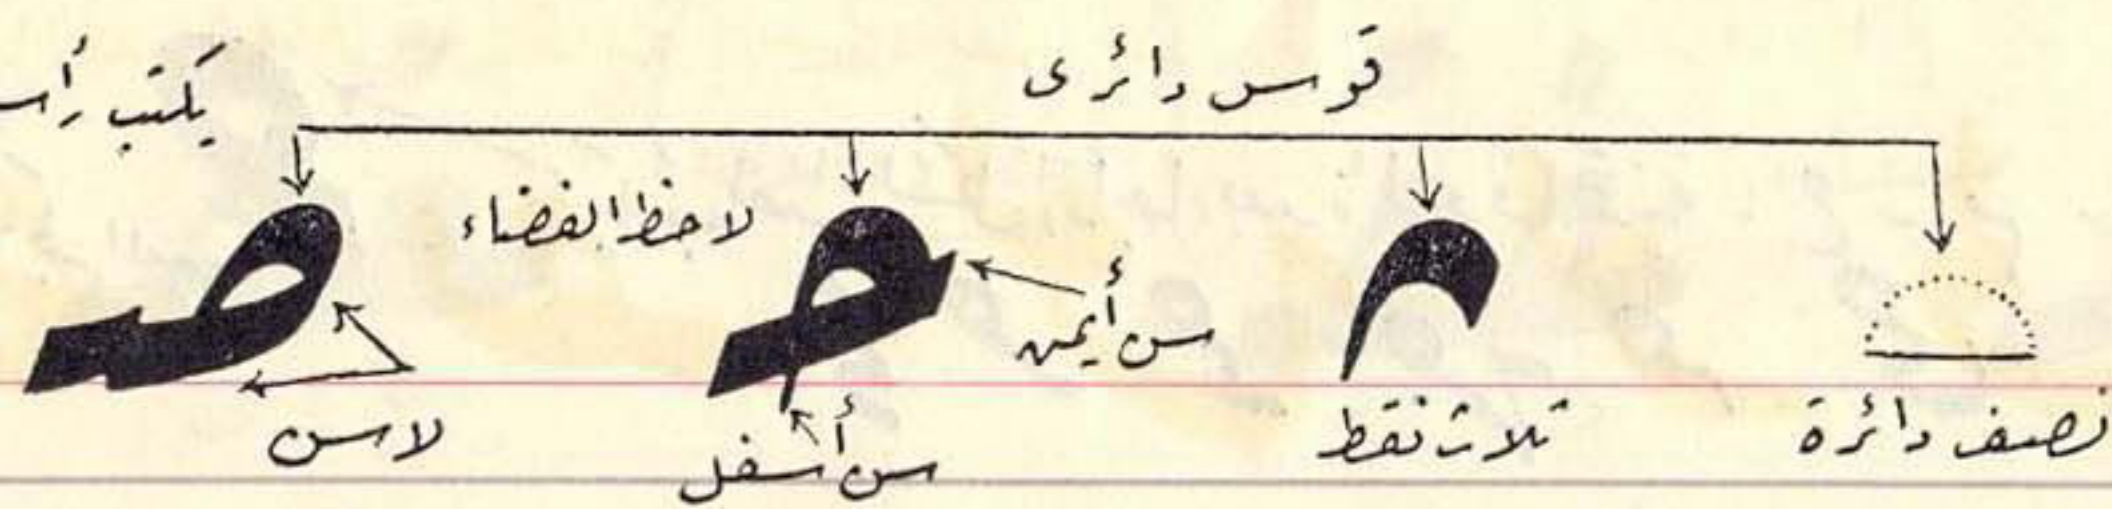 قوس دائرى
يكتب رأس
لاحظ الفضاء
سن أيمن
نصف دائرة
ثلاث نقط
سن أسفل
لاسن